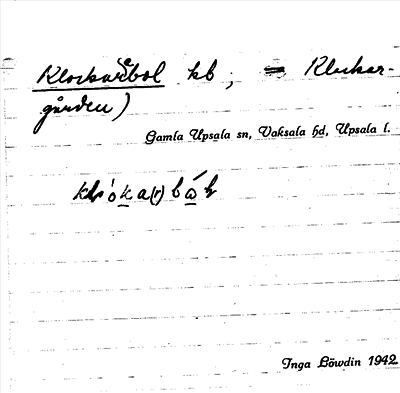 Klockarebol kb ; = Klockar-
gården)
Gamla Upsala sn, Vaksala hd, Upsala l.
Inga Löwdin 1942